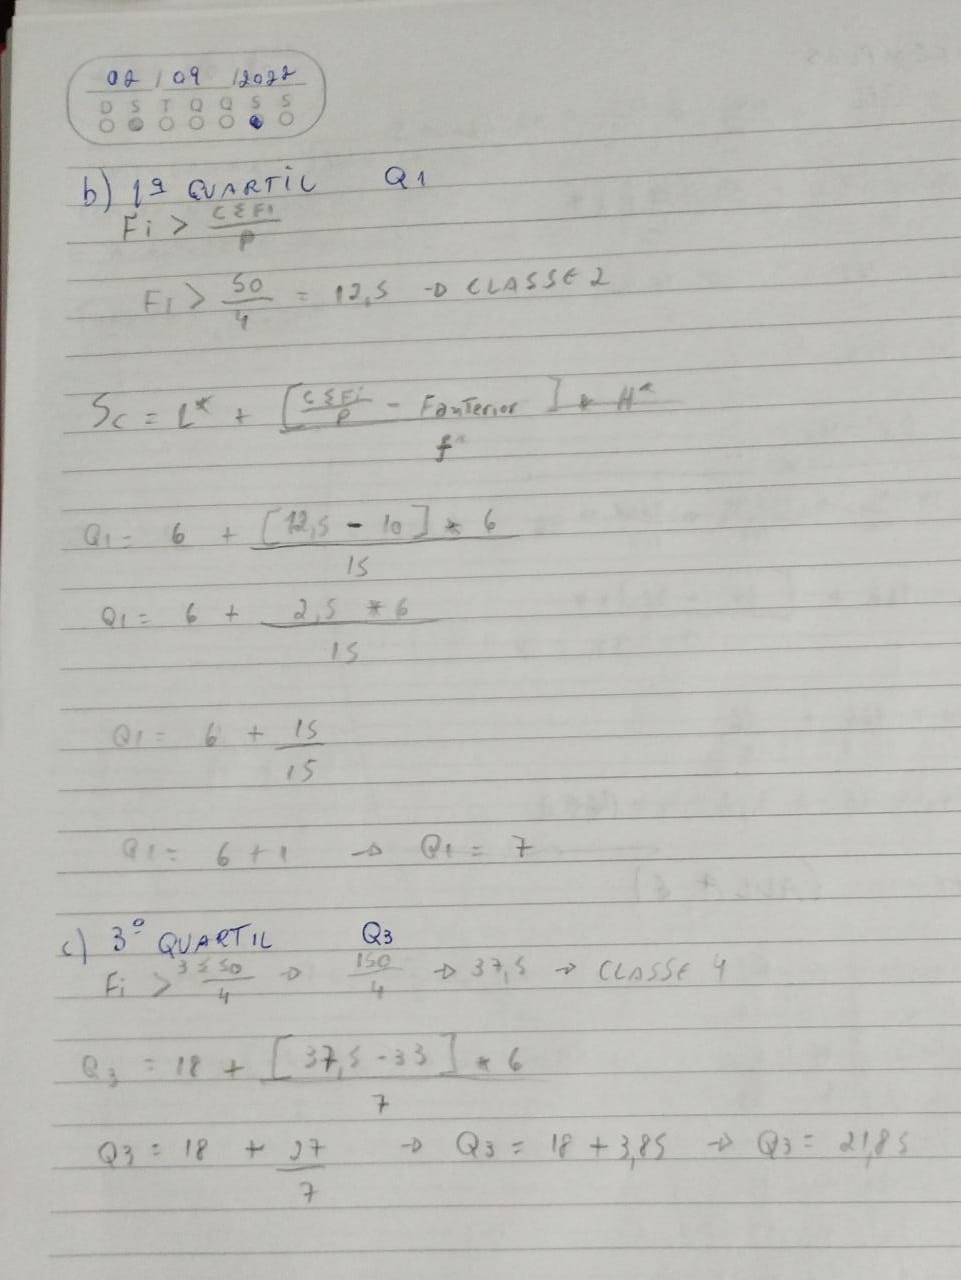 02 / 09 / 2022
D S T Q Q S S
b) 1º QUARTIL Q1
Fi > CΣFi / P
Fi > 50 / 4 = 12,5 → CLASSE 2
Sc = L* + [CΣFi / P - Fanterior] * H* / f*
Q1 = 6 + [12,5 - 10] * 6 / 15
Q1 = 6 + 2,5 * 6 / 15
Q1 = 6 + 15 / 15
Q1 = 6 + 1 → Q1 = 7
c) 3º QUARTIL Q3
Fi > 3 Σ 50 / 4 → 150 / 4 → 37,5 → CLASSE 4
Q3 = 18 + [37,5 - 33] * 6 / 7
Q3 = 18 + 27 / 7 → Q3 = 18 + 3,85 → Q3 = 21,85